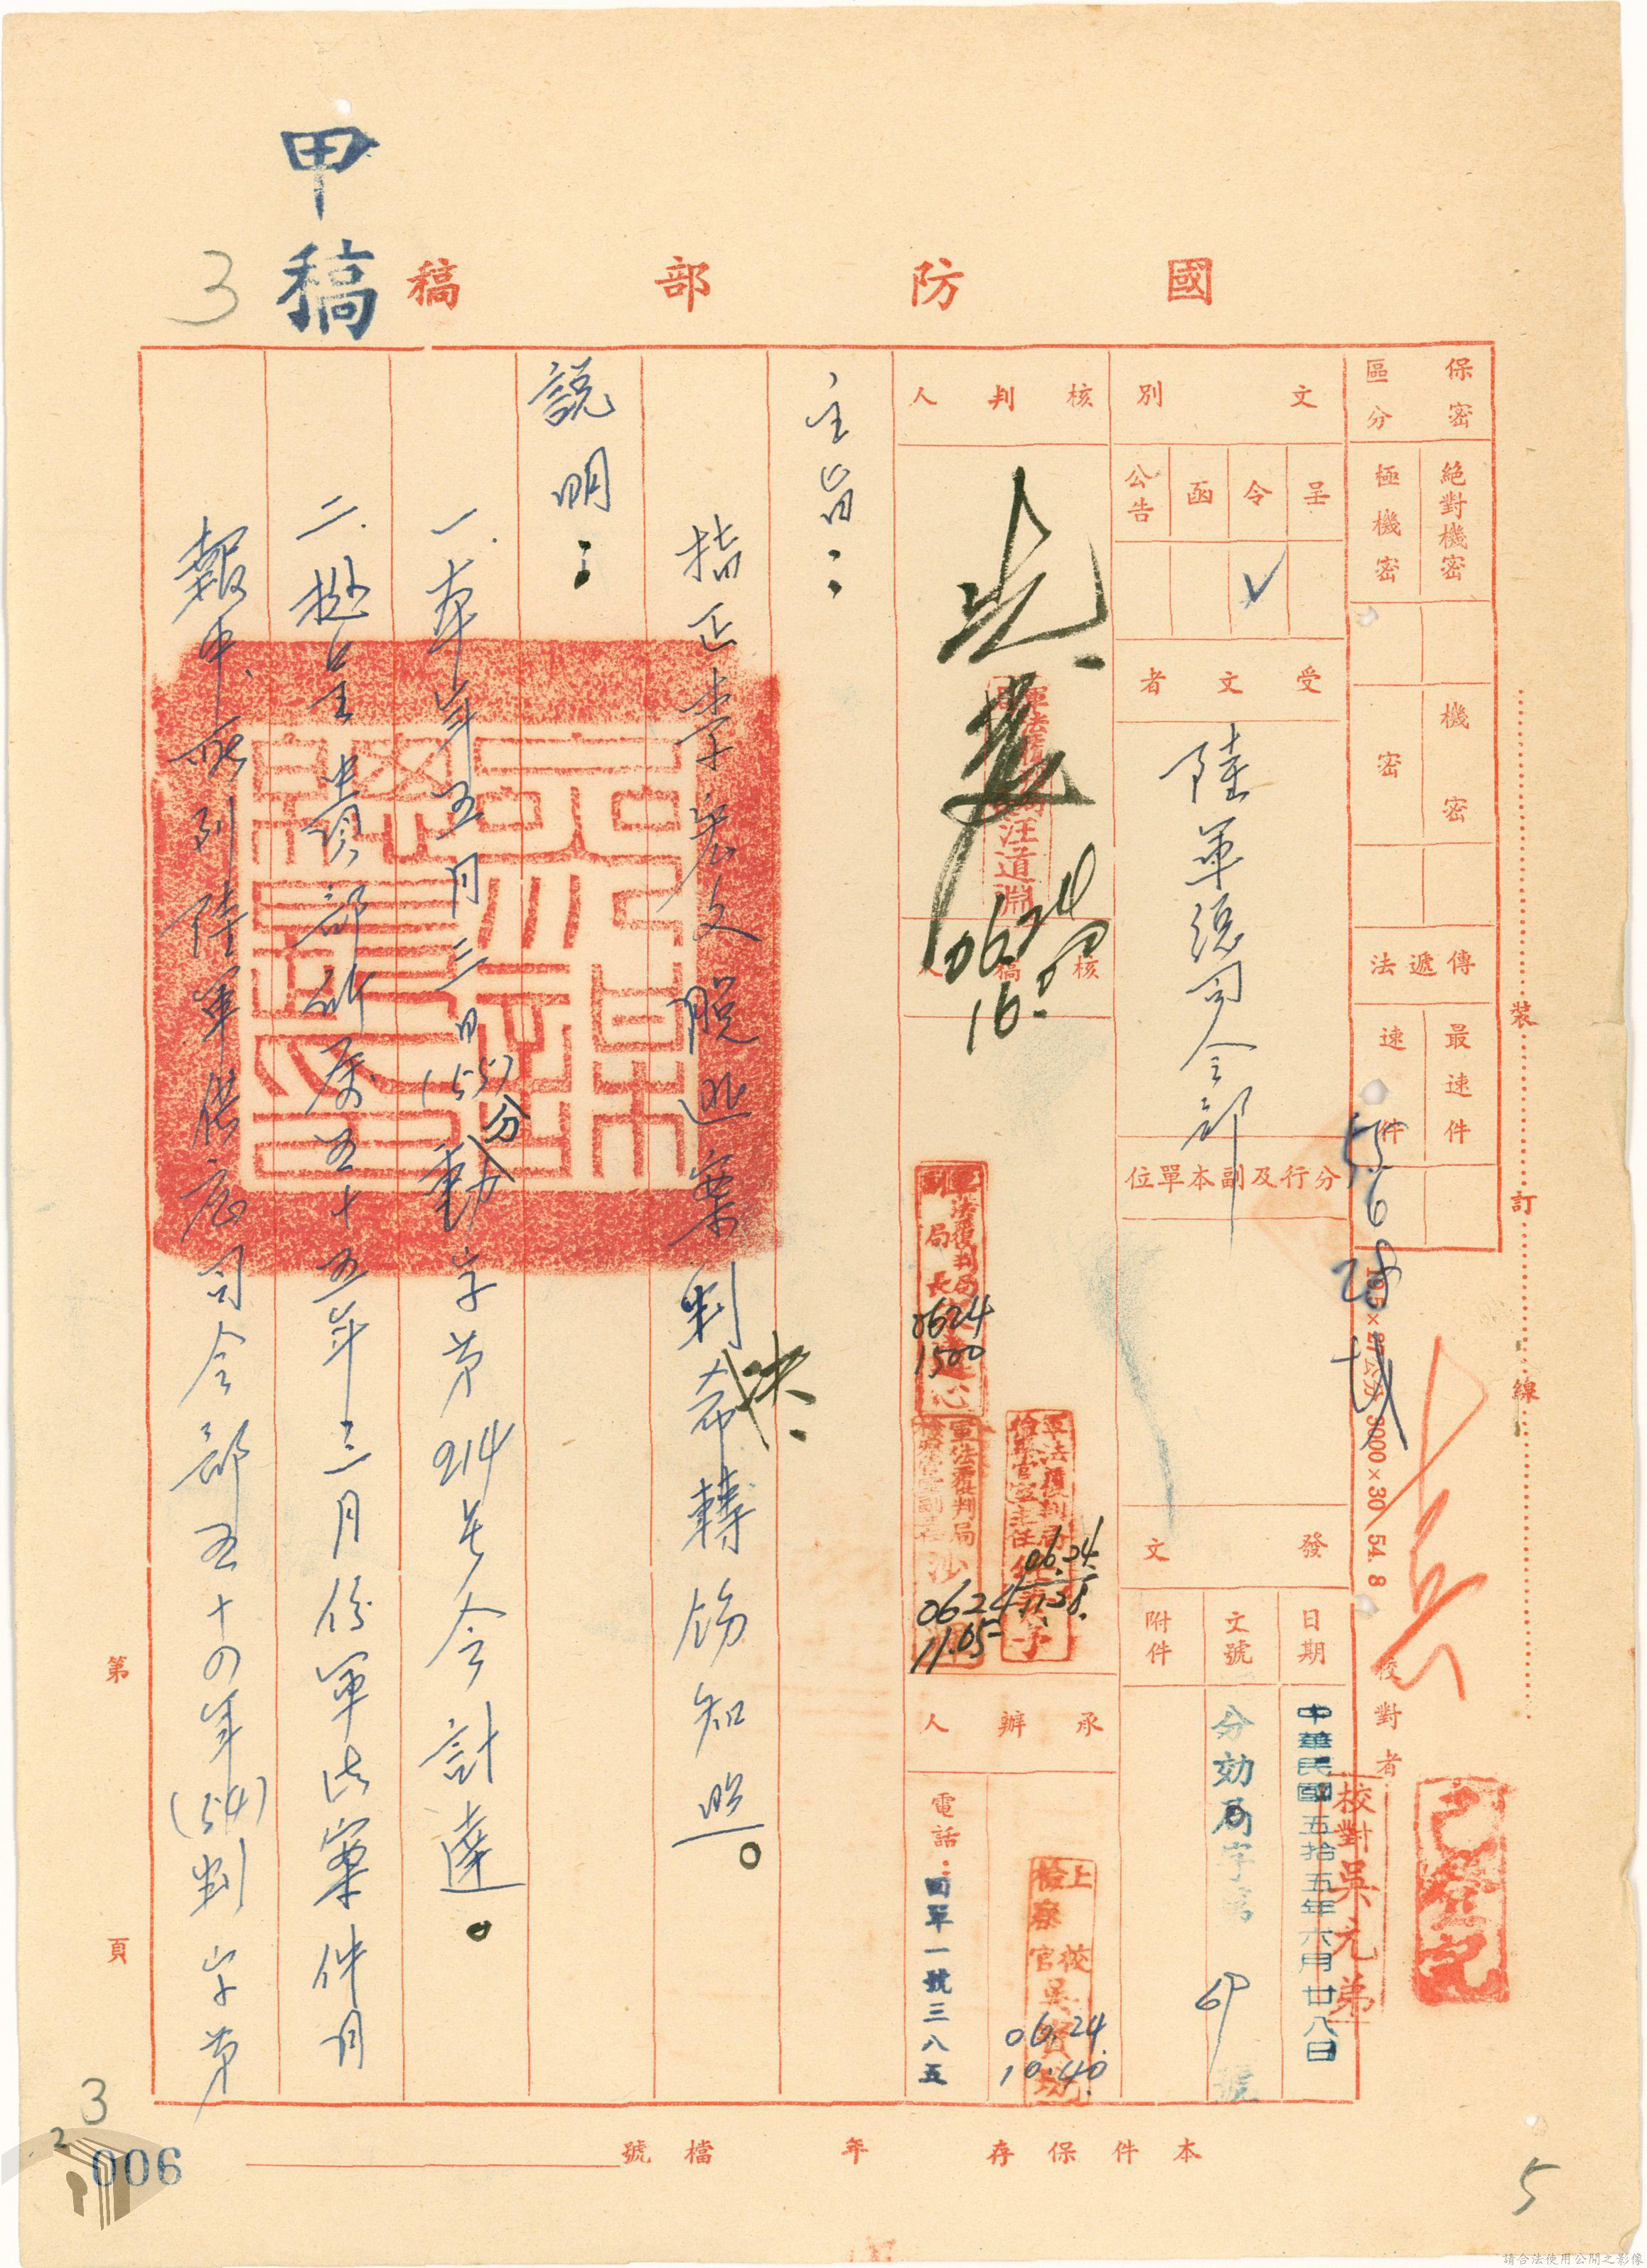 甲稿
國防部稿
3
保密區分
絕對機密
極機密
機密
密
傳遞法
最速件
速件
裝訂線
文別
呈
令
✓
函
公告
受文者
陸軍總司令部
分行及副本單位
發文
日期
中華民國五拾五年六月廿八日
文號
分効局字第
號
附件
核判人
汪道淵
0624
16
核稿人
軍法覆判局
局長
0624
1500
軍法覆判局
0624
11.05
軍法覆判局
檢察官室主任
06.24
11.38.
承辦人
上校
檢察官
06.24.
10.40.
電話：國軍一號三八五
主旨：
指正李宏文脫逃案判決，希轉飭知照。
說明：
一、本年五月三日(55)分動字第914號令計達。
二、據呈貴部所屬五十五年三月份軍法案件月
報中，所列陸軍供應司令部五十四年(54)判字第
校對者
校對吳元弟
已登記
第
頁
本件保存
年
檔號
3
2
006
5
請合法使用公開之影像